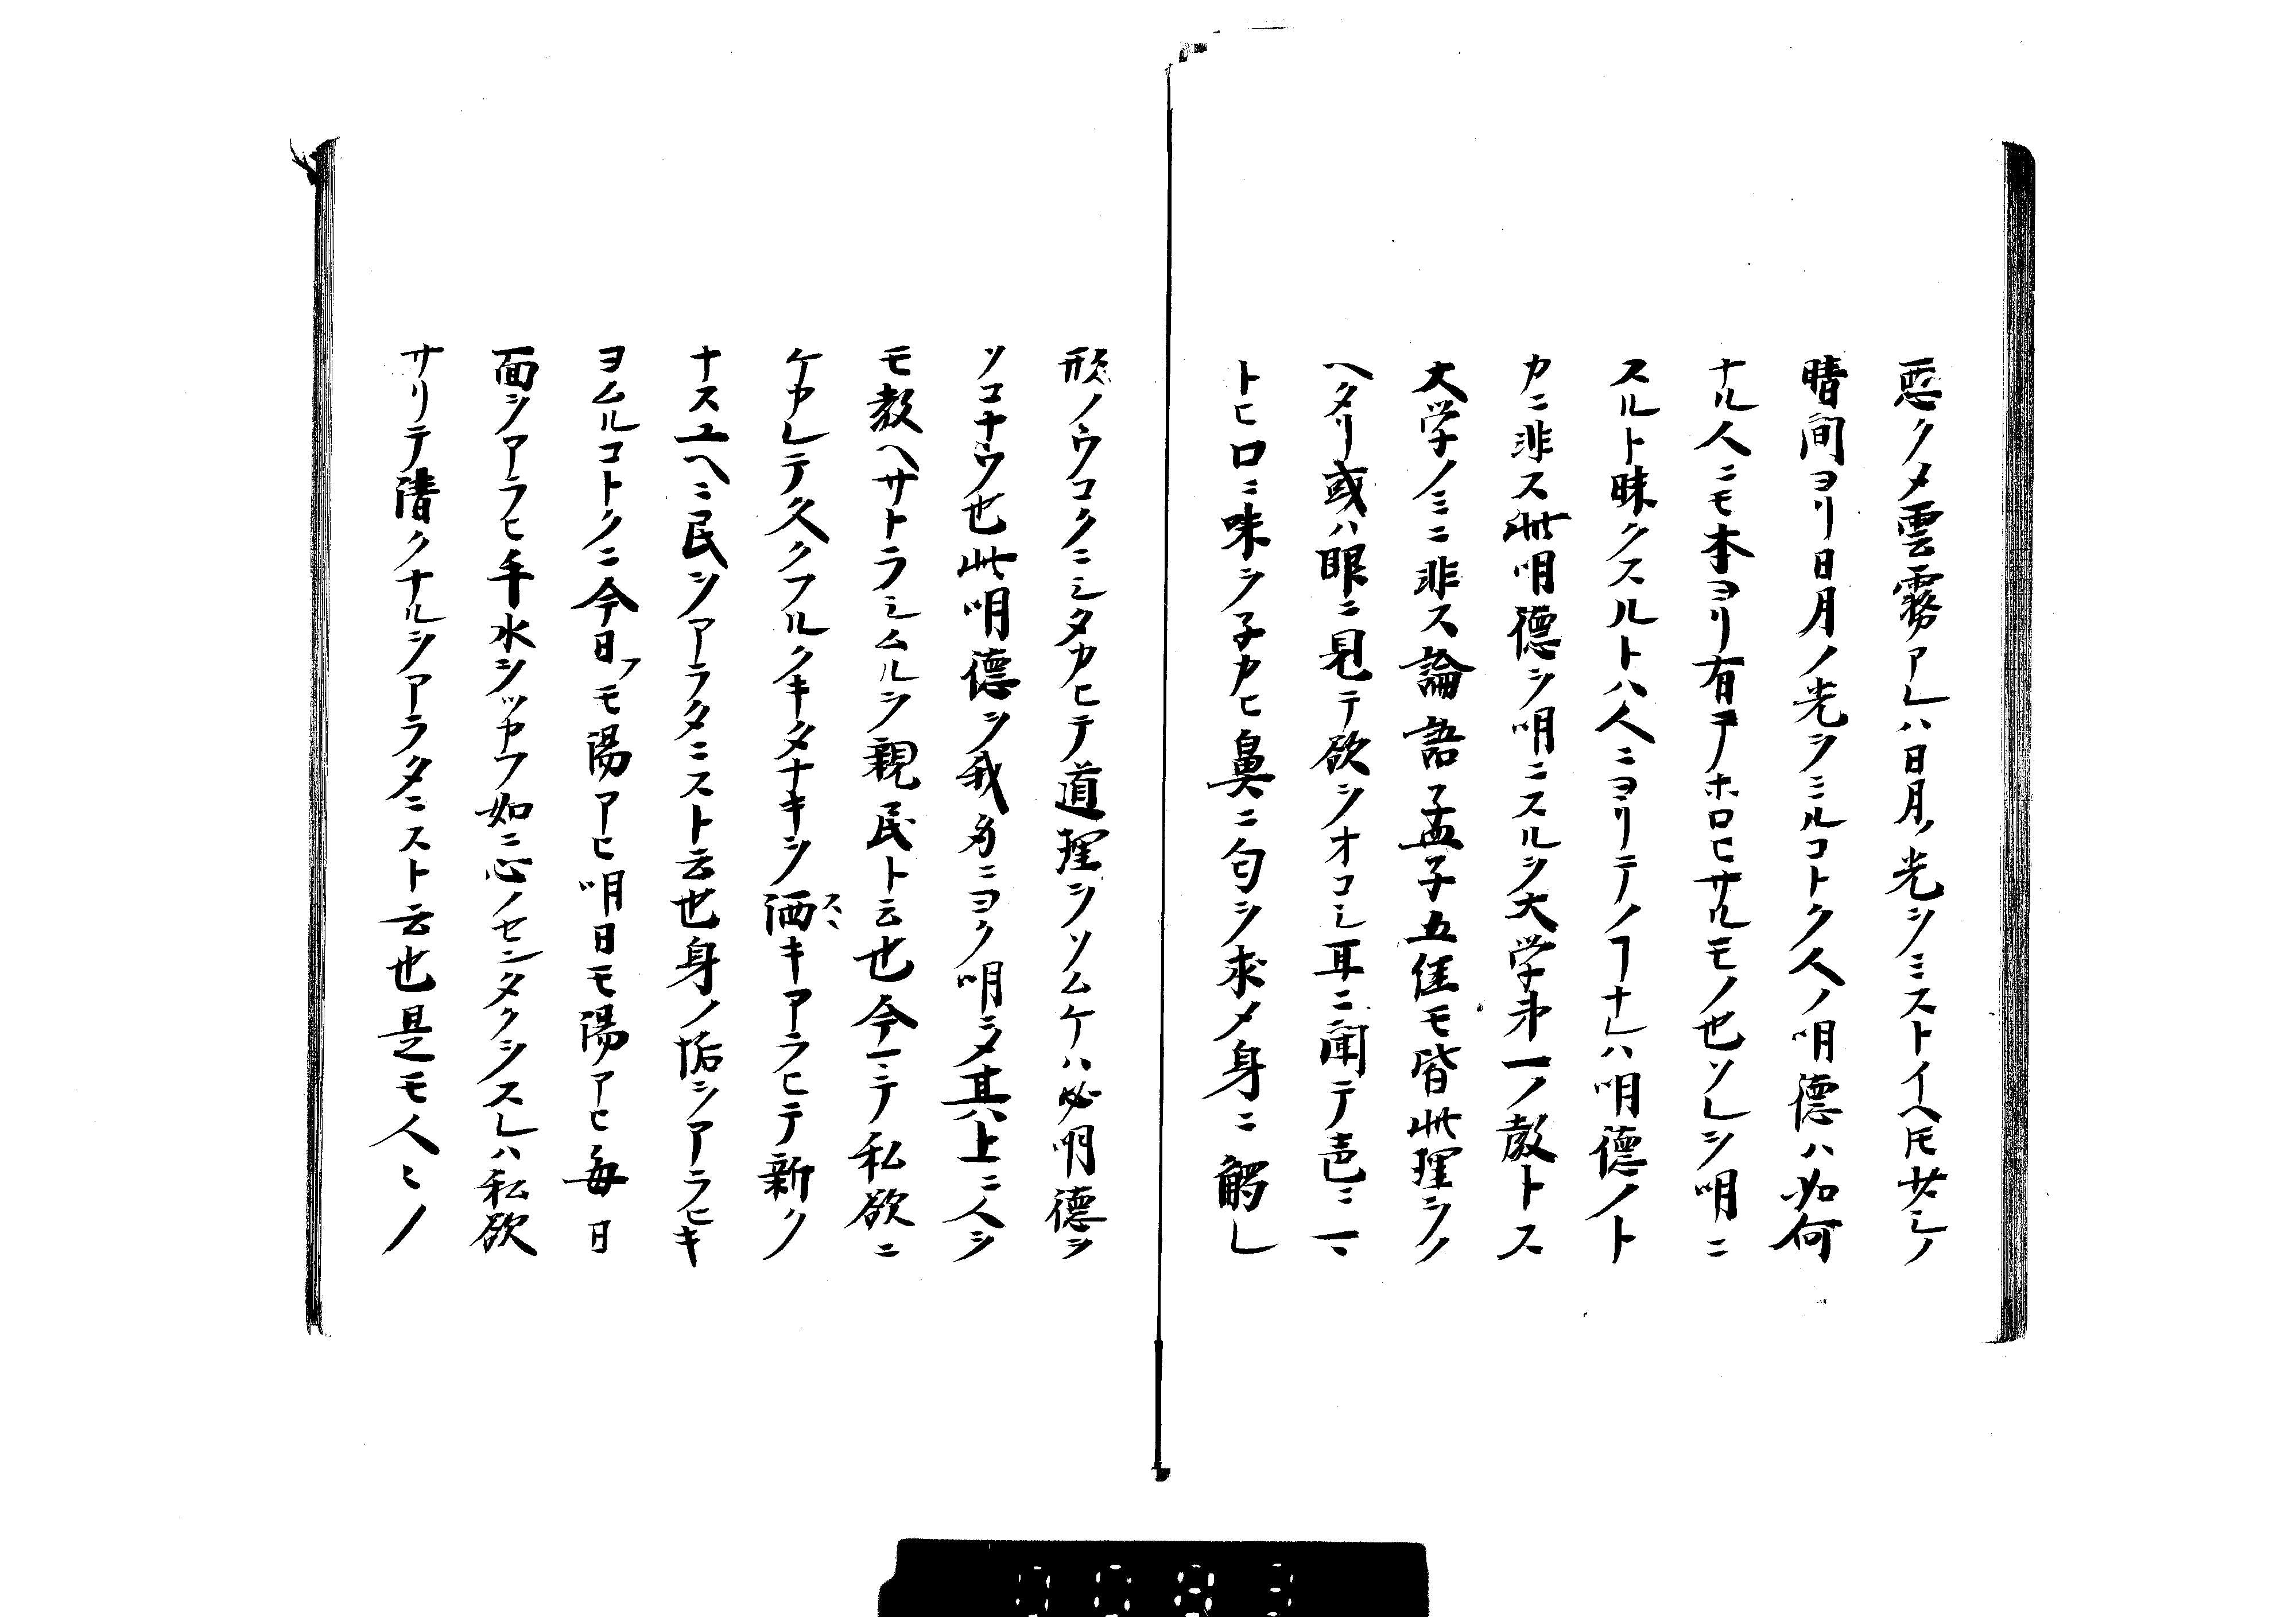 悪クメ雲霧アレハ日月ノ光ヲミストイヘトモ其シノ
晴間ヨリ日月ノ光ヲミルコトク人ノ明徳ハ如何
ナル人ニモ本ヨリ有テホロヒサルモノ也ソレヲ明ニ
スルト昧クスルトハ人ニヨリテノヿナレハ明徳ノト
カニ非ス此明徳ヲ明ニスルヲ大学第一ノ教トス
大学ノミニ非ス論語孟子五経モ皆此理ヲノ
ヘタリ或ハ眼ニ見テ欲ヲオコシ耳ニ聞テ声ニ
トヒ口ニ味ヲ子カヒ鼻ニ匂ヲ求メ身ニ觸レ
形ノウコクニシタカヒテ道理ヲソムケハ必明徳ヲ
ソコナウ也此明徳ヲ我身ニヨク明ラメ其上ニ人ヲ
モ教ヘサトラシムルヲ親民ト云也今マテ私欲ニ
ケカレテ久クフルクキタナキヲ洒キアラヒテ新ク
ナスユヘニ民ヲアラタニスト云也身ノ垢ヲアラヒキ
ヨムルコトクニ今日フモ湯アヒ明日モ湯アヒ毎日
面ヲアラヒ手水ヲツカフ如ニ心ノセンタクヲスレハ私欲
サリテ清クナルヲアラタニスト云也是モ人々ノ